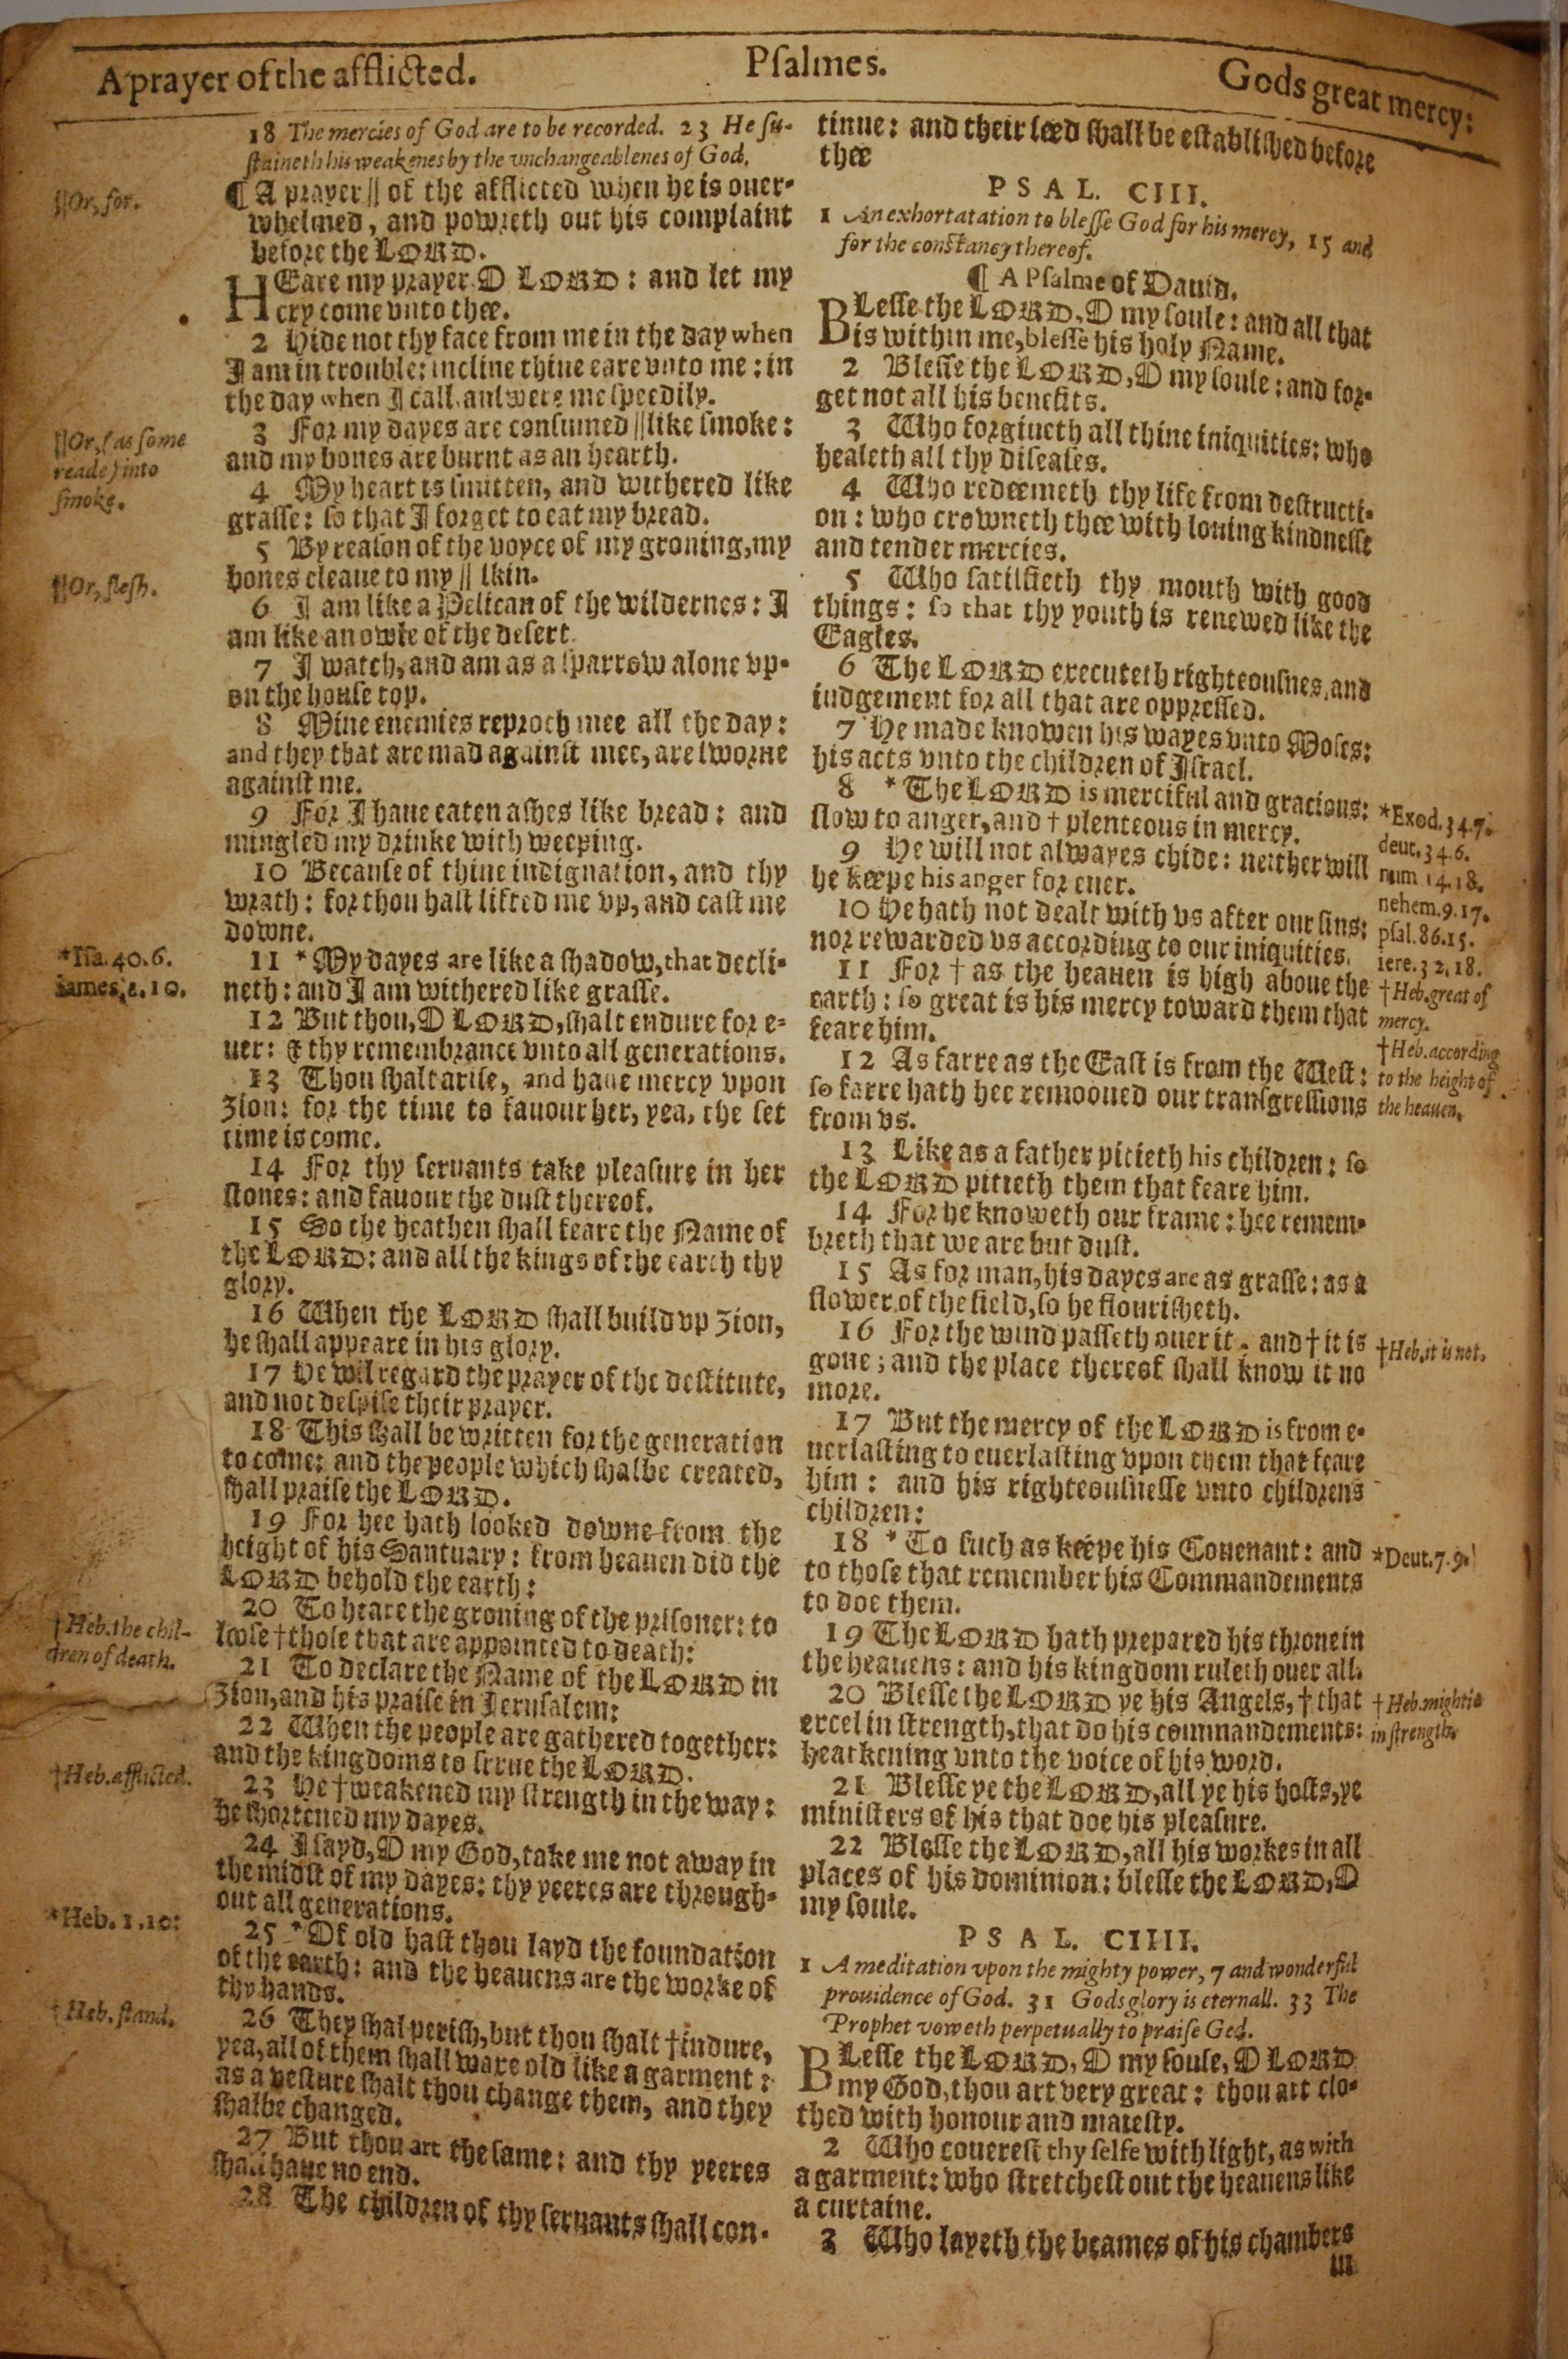 A prayer of the afflicted.
Psalmes.
Gods great mercy:
18 The mercies of God are to be recorded. 23 He su-
staineth his weakenes by the vnchangeablenes of God.
¶ A prayer || of the afflicted when he is ouer-
whelmed, and powreth out his complaint
before the LORD.
||Or, for.
HEare my prayer O LORD: and let my
cry come vnto thee.
2 Hide not thy face from me in the day when
I am in trouble: incline thine eare vnto me: in
the day when I call, answere me speedily.
3 For my dayes are consumed || like smoke:
and my bones are burnt as an hearth.
||Or, (as some
reade) into
smoke.
4 My heart is smitten, and withered like
grasse: so that I forget to eat my bread.
5 By reason of the voyce of my groning, my
bones cleaue to my || skin.
||Or, flesh.
6 I am like a Pelican of the wildernes: I
am like an owle of the desert.
7 I watch, and am as a sparrow alone vp-
on the house top.
8 Mine enemies reproch mee all the day:
and they that are mad against mee, are sworne
against me.
9 For I haue eaten ashes like bread: and
mingled my drinke with weeping.
10 Because of thine indignation, and thy
wrath: for thou hast lifted me vp, and cast me
downe.
11 * My dayes are like a shadow, that decli-
neth: and I am withered like grasse.
*Isa. 40.6.
iames, 1. 10.
12 But thou, O LORD, shalt endure for e-
uer: & thy remembrance vnto all generations.
13 Thou shalt arise, and haue mercy vpon
Zion: for the time to fauour her, yea, the set
time is come.
14 For thy seruants take pleasure in her
stones: and fauour the dust thereof.
15 So the heathen shall feare the Name of
the LORD: and all the kings of the earth thy
glory.
16 When the LORD shall build vp Zion,
he shall appeare in his glory.
17 He wil regard the prayer of the destitute,
and not despise their prayer.
18 This shall be written for the generation
to come: and the people which shalbe created,
shall praise the LORD.
19 For hee hath looked downe from the
height of his Santuary: from heauen did the
LORD behold the earth:
20 To heare the groning of the prisoner: to
loose † those that are appointed to death:
†Heb. the chil-
dren of death.
21 To declare the Name of the LORD in
Zion, and his praise in Ierusalem:
22 When the people are gathered together:
and the kingdoms to serue the LORD.
23 He † weakened my strength in the way:
he shortened my dayes.
†Heb. afflicted.
24 I sayd, O my God, take me not away in
the midst of my dayes: thy yeeres are through-
out all generations.
25 * Of old hast thou layd the foundation
of the earth: and the heauens are the worke of
thy hands.
*Heb. 1.10:
26 They shal perish, but thou shalt † indure,
yea, all of them shall waxe old like a garment:
as a vesture shalt thou change them, and they
shalbe changed.
†Heb. stand.
27 But thou art the same: and thy yeeres
shall haue no end.
28 The children of thy seruants shall con-
tinue: and their seed shall be established before
thee
PSAL. CIII.
1 An exhortatation to blesse God for his mercy, 15 and
for the constancy thereof.
¶ A Psalme of Dauid.
BLesse the LORD, O my soule: and all that
is within me, blesse his holy Name.
2 Blesse the LORD, O my soule: and for-
get not all his benefits.
3 Who forgiueth all thine iniquities: who
healeth all thy diseases.
4 Who redeemeth thy life from destructi-
on: who crowneth thee with louing kindnesse
and tender mercies.
5 Who satisfieth thy mouth with good
things: so that thy youth is renewed like the
Eagles.
6 The LORD executeth righteousnes, and
iudgement for all that are oppressed.
7 He made knowen his wayes vnto Moses:
his acts vnto the children of Israel.
8 * The LORD is merciful and gracious:
slow to anger, and † plenteous in mercy.
9 He will not alwayes chide: neither will
he keepe his anger for euer.
10 He hath not dealt with vs after our sins:
nor rewarded vs according to our iniquities.
*Exod. 34.7.
deut. 34.6.
num 14.18.
nehem. 9.17.
psal. 86.15.
iere. 32.18.
†Heb. great of
mercy.
11 For † as the heauen is high aboue the
earth: so great is his mercy toward them that
feare him.
†Heb. according
to the height of
the heauen.
12 As farre as the East is from the West:
so farre hath hee remooued our transgressions
from vs.
13 Like as a father pitieth his children: so
the LORD pitieth them that feare him.
14 For he knoweth our frame: hee remem-
breth that we are but dust.
15 As for man, his dayes are as grasse: as a
flower of the field, so he flourisheth.
16 For the wind passeth ouer it, and † it is
gone; and the place thereof shall know it no
more.
†Heb. it is not.
17 But the mercy of the LORD is from e-
uerlasting to euerlasting vpon them that feare
him: and his righteousnesse vnto childrens
children:
18 * To such as keepe his Couenant: and
to those that remember his Commandements
to doe them.
*Deut. 7.9.
19 The LORD hath prepared his throne in
the heauens: and his kingdom ruleth ouer all.
20 Blesse the LORD ye his Angels, † that
excel in strength, that do his commandements:
hearkening vnto the voice of his word.
†Heb. mightie
in strength.
21 Blesse ye the LORD, all ye his hosts, ye
ministers of his that doe his pleasure.
22 Blesse the LORD, all his workes in all
places of his dominion: blesse the LORD, O
my soule.
PSAL. CIIII.
1 A meditation vpon the mighty power, 7 and wonderful
prouidence of God. 31 Gods glory is eternall. 33 The
Prophet voweth perpetually to praise God.
BLesse the LORD, O my soule, O LORD
my God, thou art very great: thou art clo-
thed with honour and maiesty.
2 Who couerest thy selfe with light, as with
a garment: who stretchest out the heauens like
a curtaine.
3 Who layeth the beames of his chambers
in